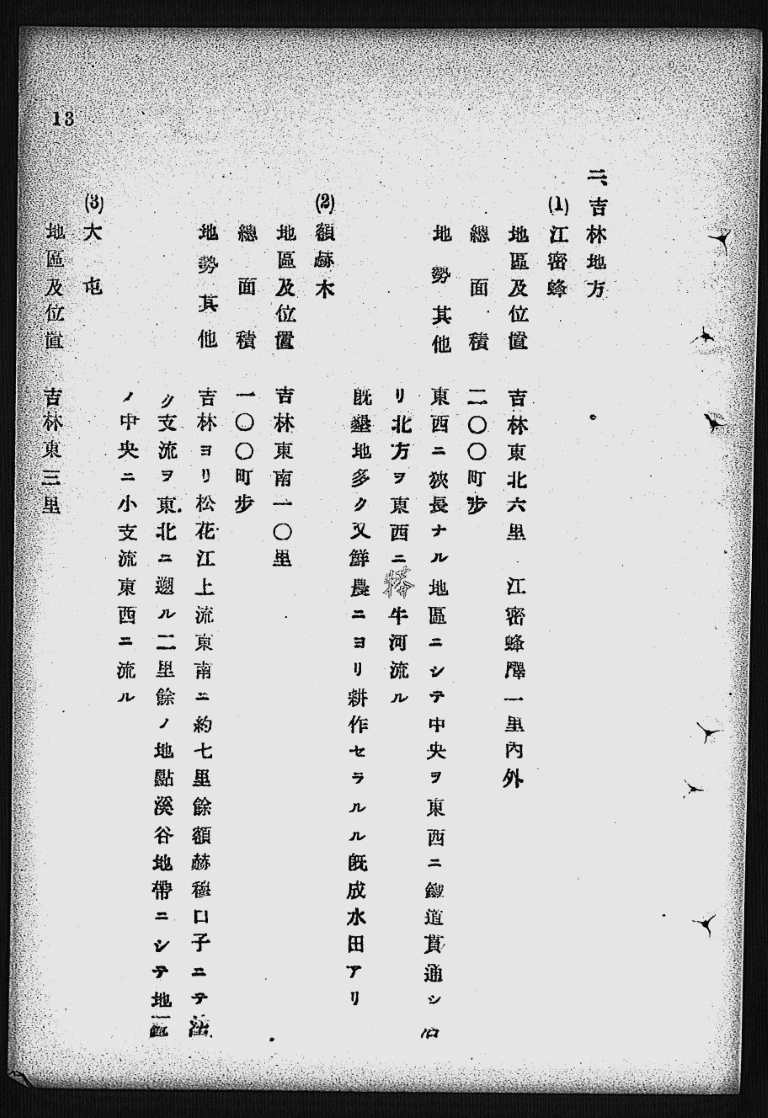 13
二、吉林地方
(1)江密蜂
地區及位置　吉林東北六里　江密蜂驛一里內外
總面積　二〇〇町步
地勢其他　東西ニ狹長ナル地區ニシテ中央ヲ東西ニ鐵道貫通シ
リ北方ヲ東西ニ牛河流ル
既墾地多ク又鮮農ニヨリ耕作セラルル既成水田アリ
(2)額赫木
地區及位置　吉林東南一〇里
總面積　一〇〇町步
地勢其他　吉林ヨリ松花江上流東南ニ約七里餘額赫穆口子ニテ
ク支流ヲ東北ニ遡ル二里餘ノ地點溪谷地帶ニシテ地區
ノ中央ニ小支流東西ニ流ル
(3)大屯
地區及位置　吉林東三里